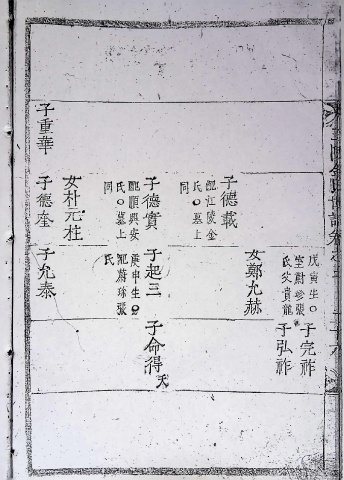 戊寅生○
室蔚珍張
氏父貴龍
子完祚
子弘祚
女鄭允赫
子德載
配江陵金
氏○墓上
同
子德實
配順興安
氏○墓上
同
子起三
庚申生○
配蔚珍張
氏
子命得夭
女朴元柱
子重華
子德奎
子允泰